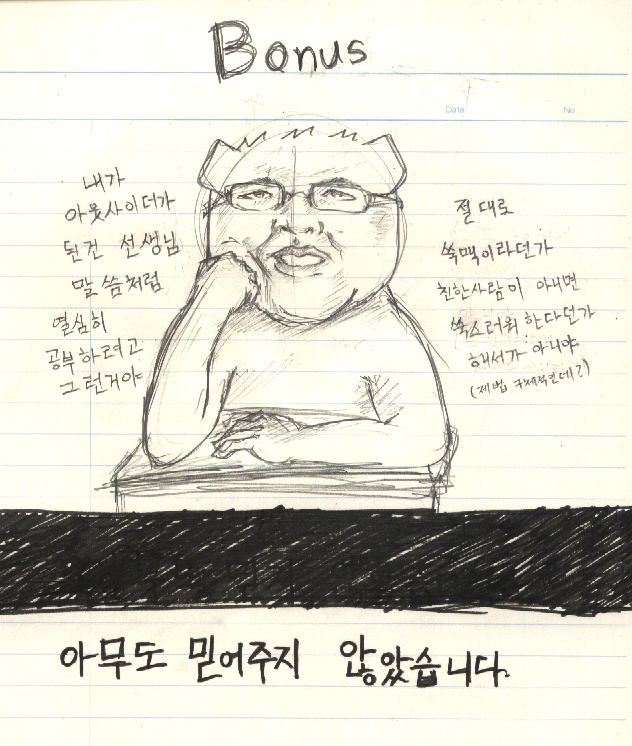 Bonus
Date
No
내가
아웃사이더가
된건 선생님
말씀처럼
열심히
공부하려고
그런거야
절대로
쑥맥이라던가
친한사람이 아니면
쑥스러워 한다던가
해서가 아니야
(제법 구체적인데?)
아무도 믿어주지 않았습니다.